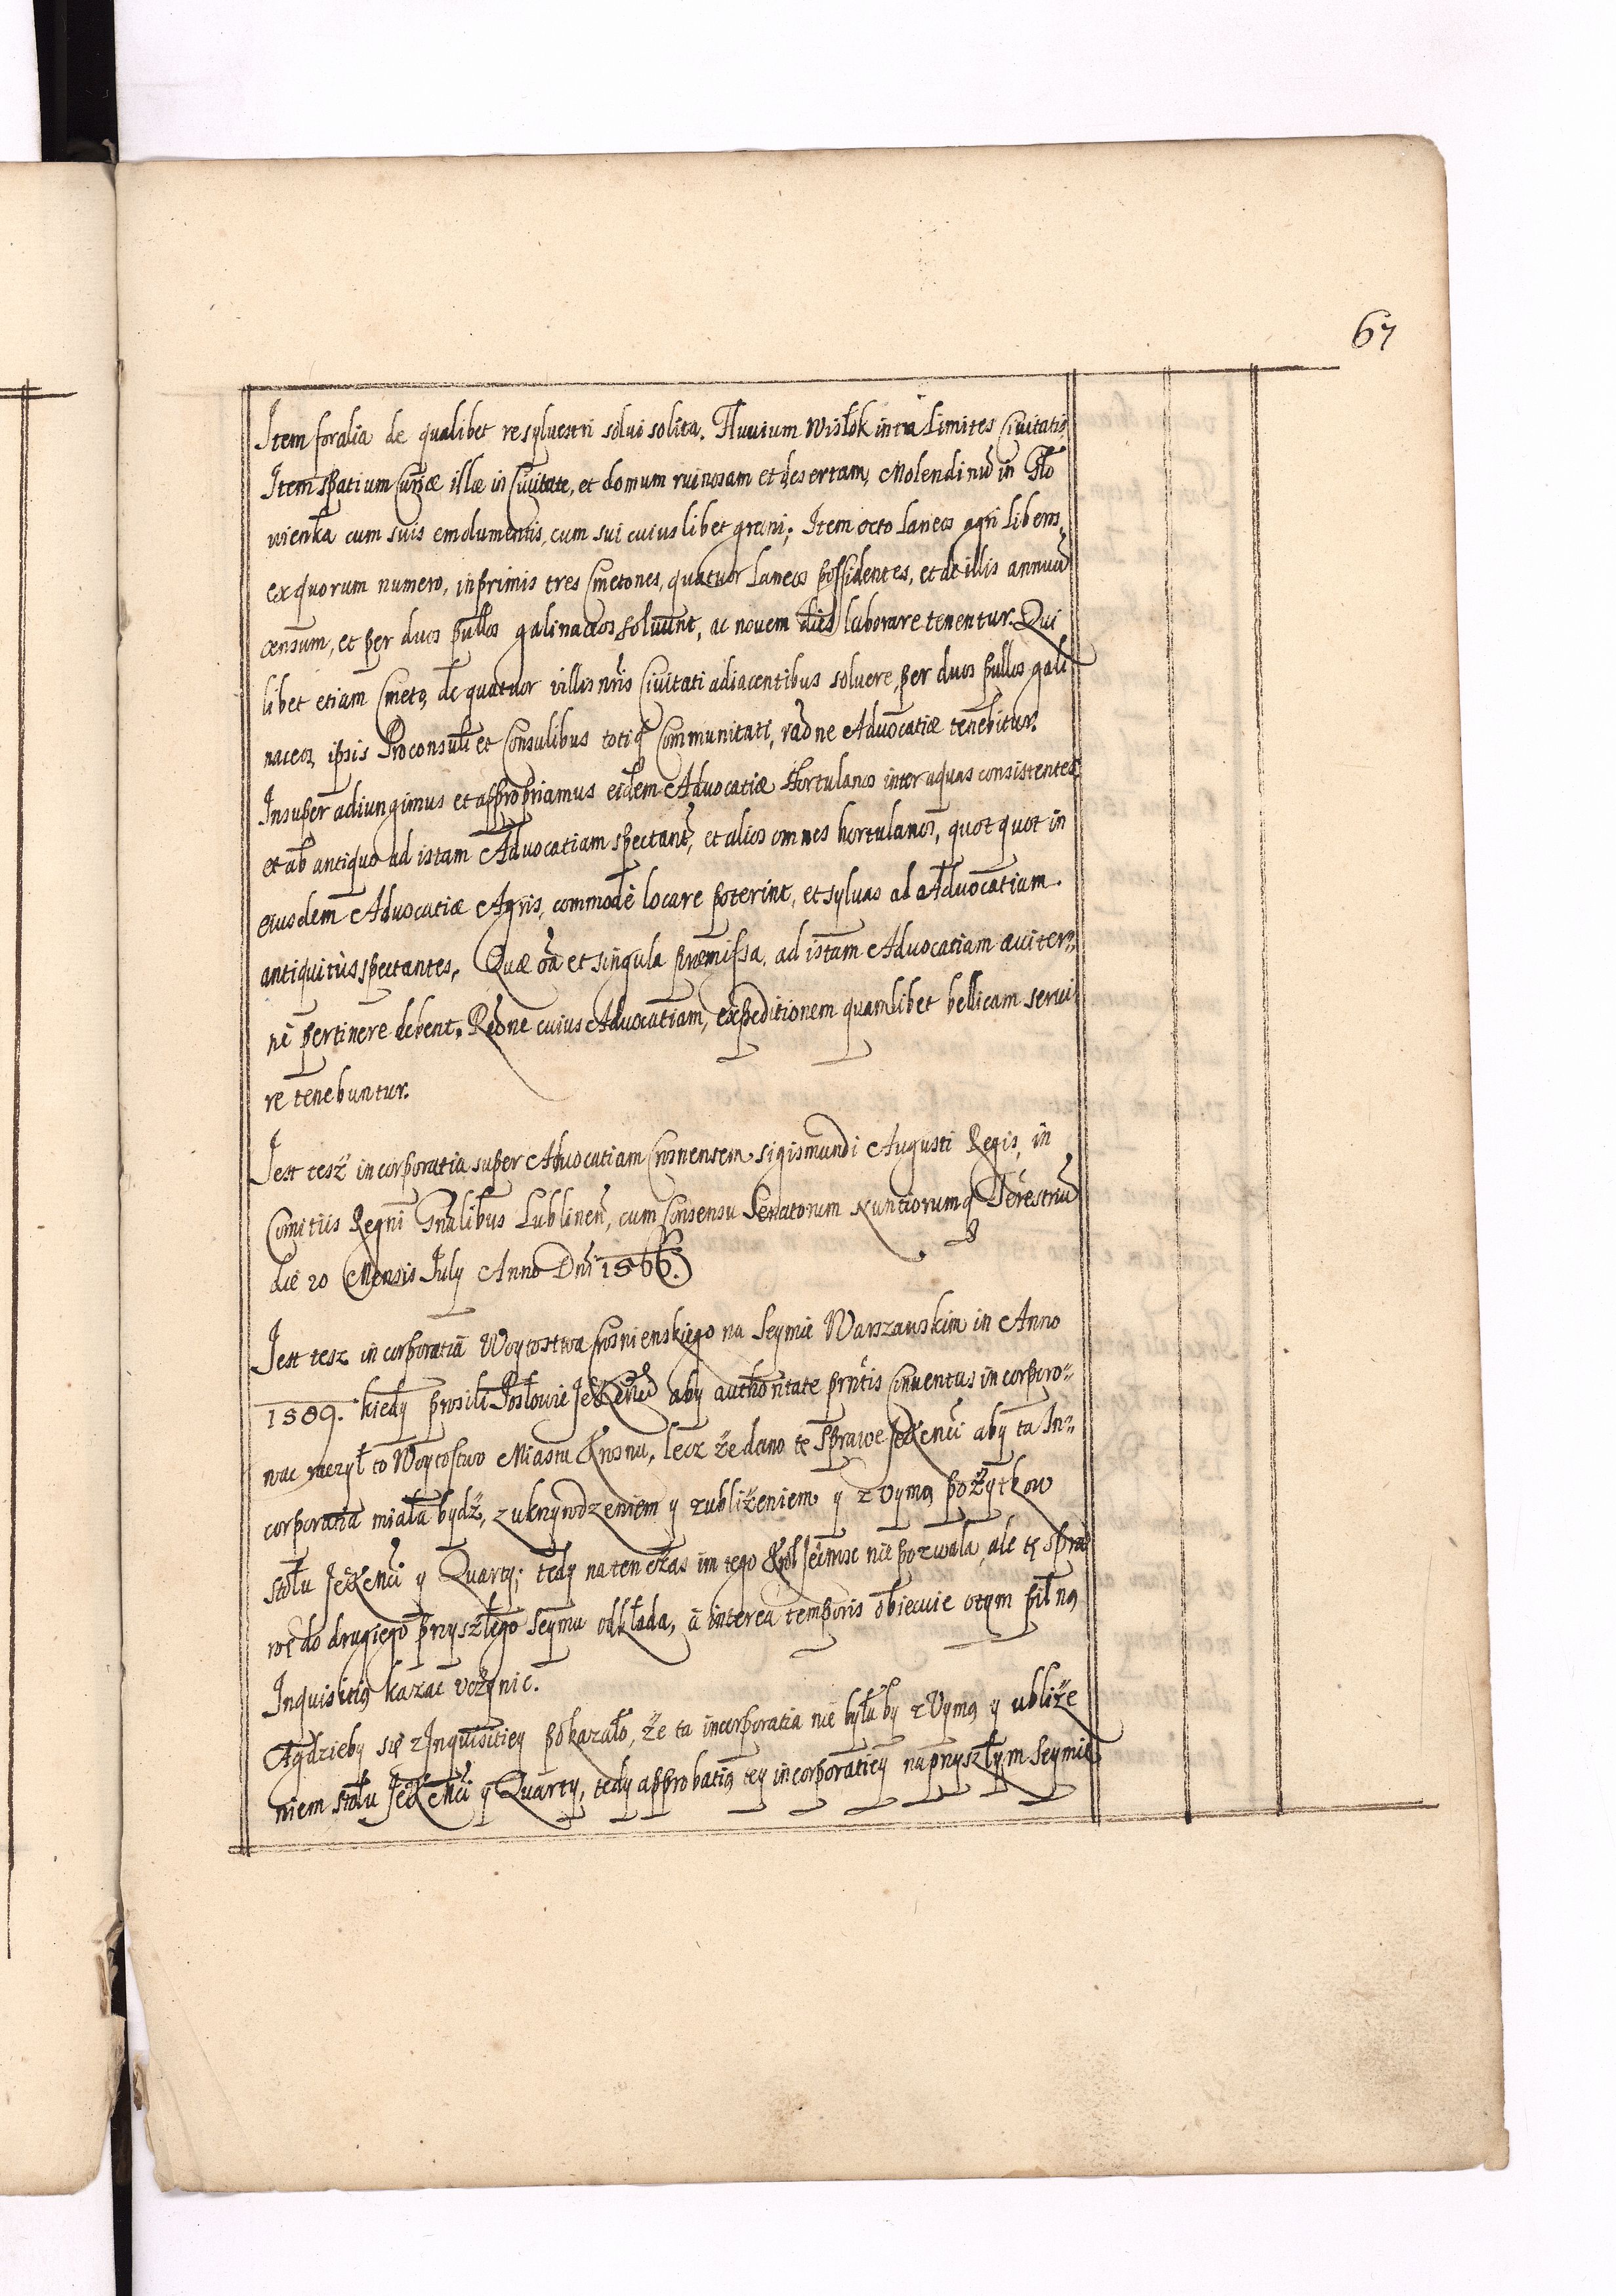 67
Item foralia de qualibet re sylvestri solvi solita. Fluvium Wisłok intra Limites Civitatis.
Item spatium Curiæ illæ in Civitate, et domum ruinosam et desertam, Molendinũ in Gło
wienka cum suis emolumentis, cum sui cuius libet greni; Item octo Laneos agri Liberos,
ex quorum numero, inprimis tres Cmetones, quatuor Laneos possidentes, et de illis annuũ
censum, et per duos pullos galinaceos solvunt, ac novem dies laborare tenentur. Qui
libet etiam Cmeto, de quatuor villis nr̃is Civitati adiacentibus soluere, per duos pullos gali
naceos, ipsis Proconsuli et Consulibus totiq Communitati, raõne Advocatiæ tenebitur.
Insuper adiungimus et appropriamus eidem Advocatiæ Hortulanos inter aquas consistentes,
et ab antiquo ad istam Advocatiam spectant̃, et alios omnes hortulanos, quot quot in
eiusdem Advocatiæ Agris, commode locare poterint, et sylvas ad Advocatiam
antiquitùs spectantes, Quæ õia et singula præmissa, ad istam Advocatiam aviter„
nè pertinere debent. Rãone cuius Advocatiam, expeditionem quamlibet bellicam servi
re tenebuntur.
Jest tesz incorporatia super Advocatiam Crosnensem Sigismundi Augusti Regis, in
Comitiis Regni Gñalibus Lublineñ, cum Consensu Senatorum Nuntiorumq Terestriũ
die 20 Mensis July Anno Dñi 1566.
Jest tesz incorporatia Woytostwa Crosnienskiego na Seymie Warszawskim in Anno
1589. kiedy prosili Posłowie JeKEMci aby authoritate pr̃ntis Conventus incorporo„
wac raczył to Woytostwo Miastu Krosnu, lecz że dano tę Sprawę JeKEmci aby ta In„
corporatia miała bydź, z ukrzywdzeniem y z ubliżeniem y z Uymą pożytkow
stołu JeKEmci y Quarty; tedy na ten czas im tego Krol Jeimsc nie pozwala, ale tę spra
wę do drugiego przyszłego Seymu odkłada, à interea temporis obiecuie otym pilną
Inquisitią kazac uczynic.
A gdzieby się z Inquisitiey pokazało, że ta incorporatia nie byłaby z Uymą y ubliże
niem stołu JeKEMci y Quarty, tedy approbatią tey incorporatiey na przyszłym Seymie